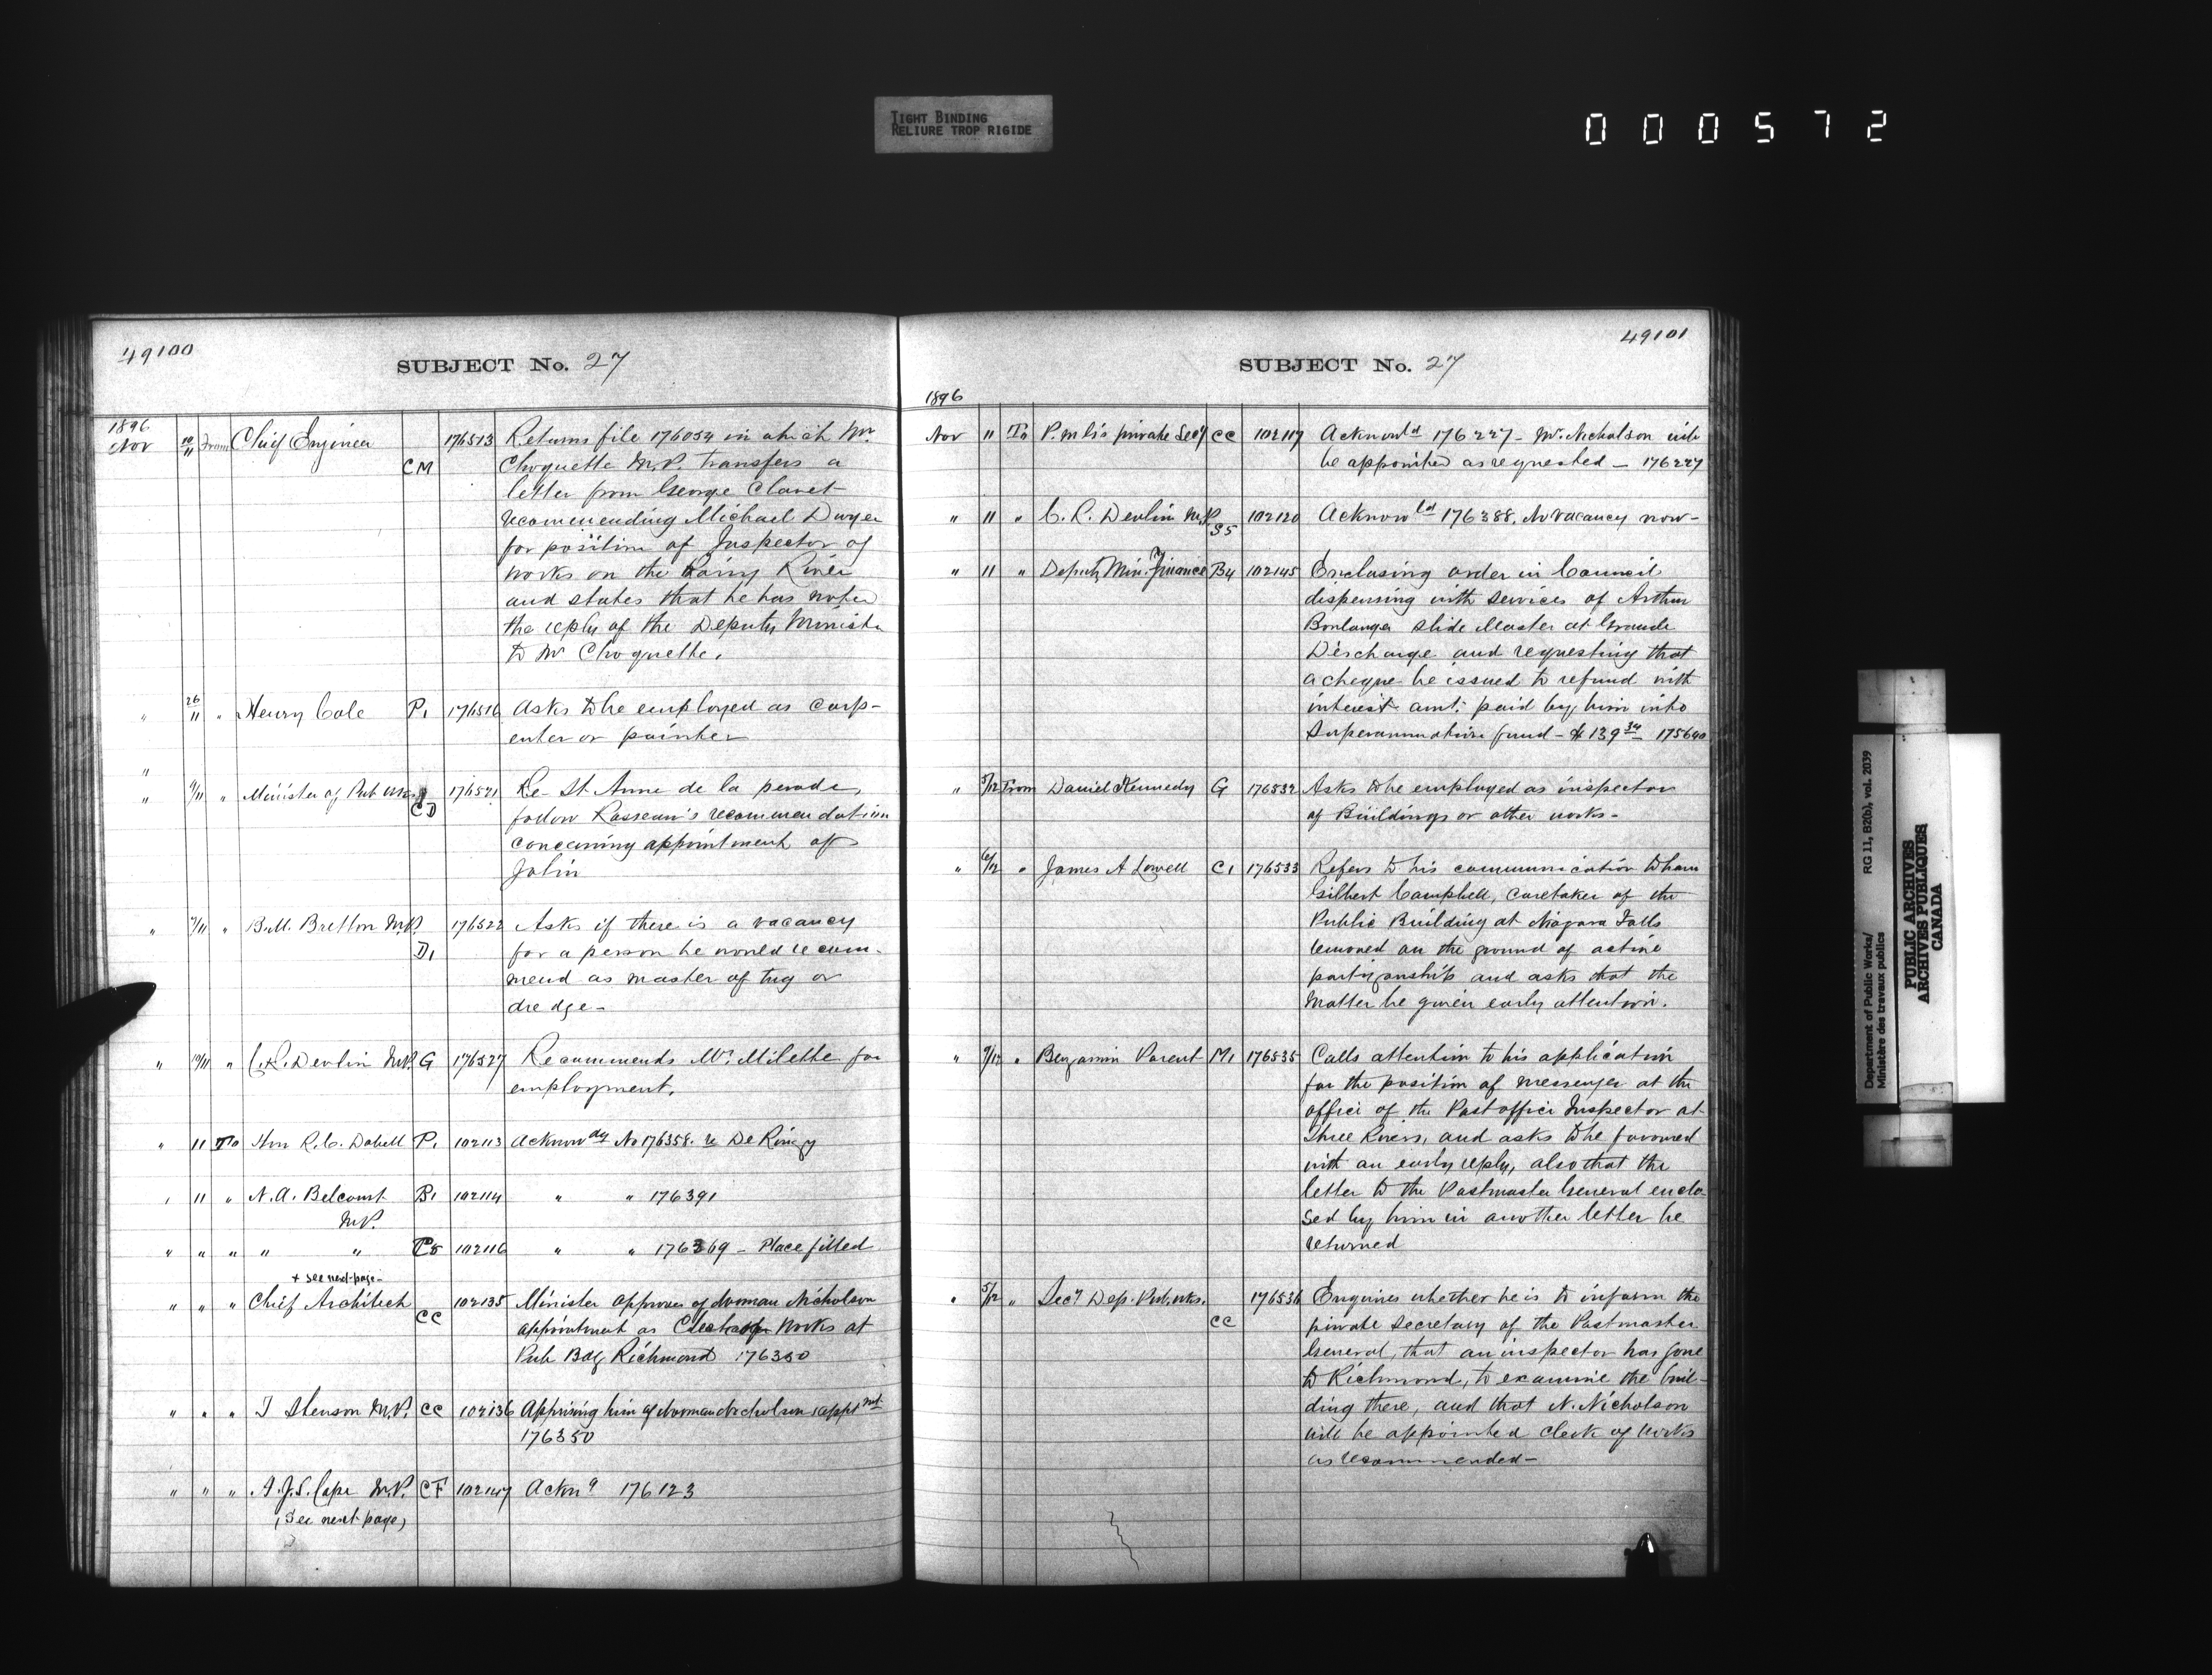 TIGHT BINDING
RELIURE TROP RIGIDE
000572
49100
SUBJECT No. 27
1896
Nov 10/11 From Chief Engineer CM 176513 Returns file 176054 in which Mr
Choquette M.P. transfers a
letter from George Clavet
recommending Michael Dwyer
for position of Inspector of
works on the Rainy River
and states that he has noted
the reply of the Deputy Minister
to Mr Choquette.
" 26/11 " Henry Cole P1 176516 Asks to be employed as carp-
enter or painter
"
" 9/11 " Minister of Pub Wks CD 176521 Re St. Anne de la perade,
follow Rasseau's recommendation
concerning appointment of
Jolin
" 7/11 " B.M. Britton M.P. D1 176522 Asks if there is a vacancy
for a person he would recom-
mend as master of tug or
dredge-
" 10/11 " C.R. Devlin M.P. G 176527 Recommends Mr. Milette for
employment.
" 11 To Hon R.C. Dobell P1 102113 Acknow dg No 176358. re De Ringy
" 11 " N.A. Belcourt B1 102114 " " 176391
M.P.
" " " " " 102116 " " 176369 - Place filled
+ see next page-
" " " Chief Architect CC 102135 Minister approves of Norman Nicholson
appointment as Works at
Pub Bdg Richmond 176350
" " " T Stenson M.P. CC 102136 Apprising him of Norman Nicholson's appt mt
176350
" " " CF 102147 Ackn 176123
(See next page)
49101
SUBJECT No. 27
1896
Nov 11 To P.M.G's private Sec'y CC 102117 Acknowld 176227 - Mr. Nicholson will
be appointed as requested - 176227
" 11 " C.R. Devlin M.P. S5 102120 Acknowld 176388. No vacancy now-
" 11 " Deputy Min. of Finance B4 102145 Enclosing order in Council
dispensing with services of Arthur
Boulanger Slide Master at Grande
Discharge and requesting that
a cheque be issued to refund with
interest amt. paid by him into
Superannuation fund - $139 34 175640
" 5/12 From Daniel Kennedy G 176532 Asks to be employed as inspector
of Buildings or other works-
" 6/12 " James A Lowell C1 176533 Refers to his communication to have
Gilbert Campbell, caretaker of the
Public Building at Niagara Falls
removed on the ground of active
partizanship and asks that the
matter be given early attention.
" 9/12 " Benjamin Parent M1 176535 Calls attention to his application
for the position of messenger at the
office of the Postoffice Inspector at
Three Rivers, and asks to be favoured
with an early reply, also that the
letter to the Postmaster General enclo-
sed by him in another letter be
returned
" 5/12 " Secy Dep. Pub. wks. CC 176536 Enquires whether he is to inform the
private Secretary of the Postmaster
General, that an inspector has gone
to Richmond, to examine the buil-
ding there, and that N. Nicholson
will be appointed clerk of works
as recommended-
Department of Public Works/ RG 11, B2(b), vol. 2039
Ministère des travaux publics
PUBLIC ARCHIVES
ARCHIVES PUBLIQUES
CANADA